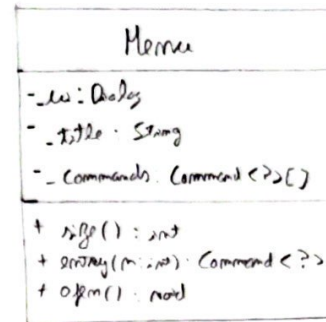 Menu
- _ui : Dialog
- _title : String
- _commands : Command <?>[]
+ size() : int
+ entry(n : int) : Command <?>
+ open() : void